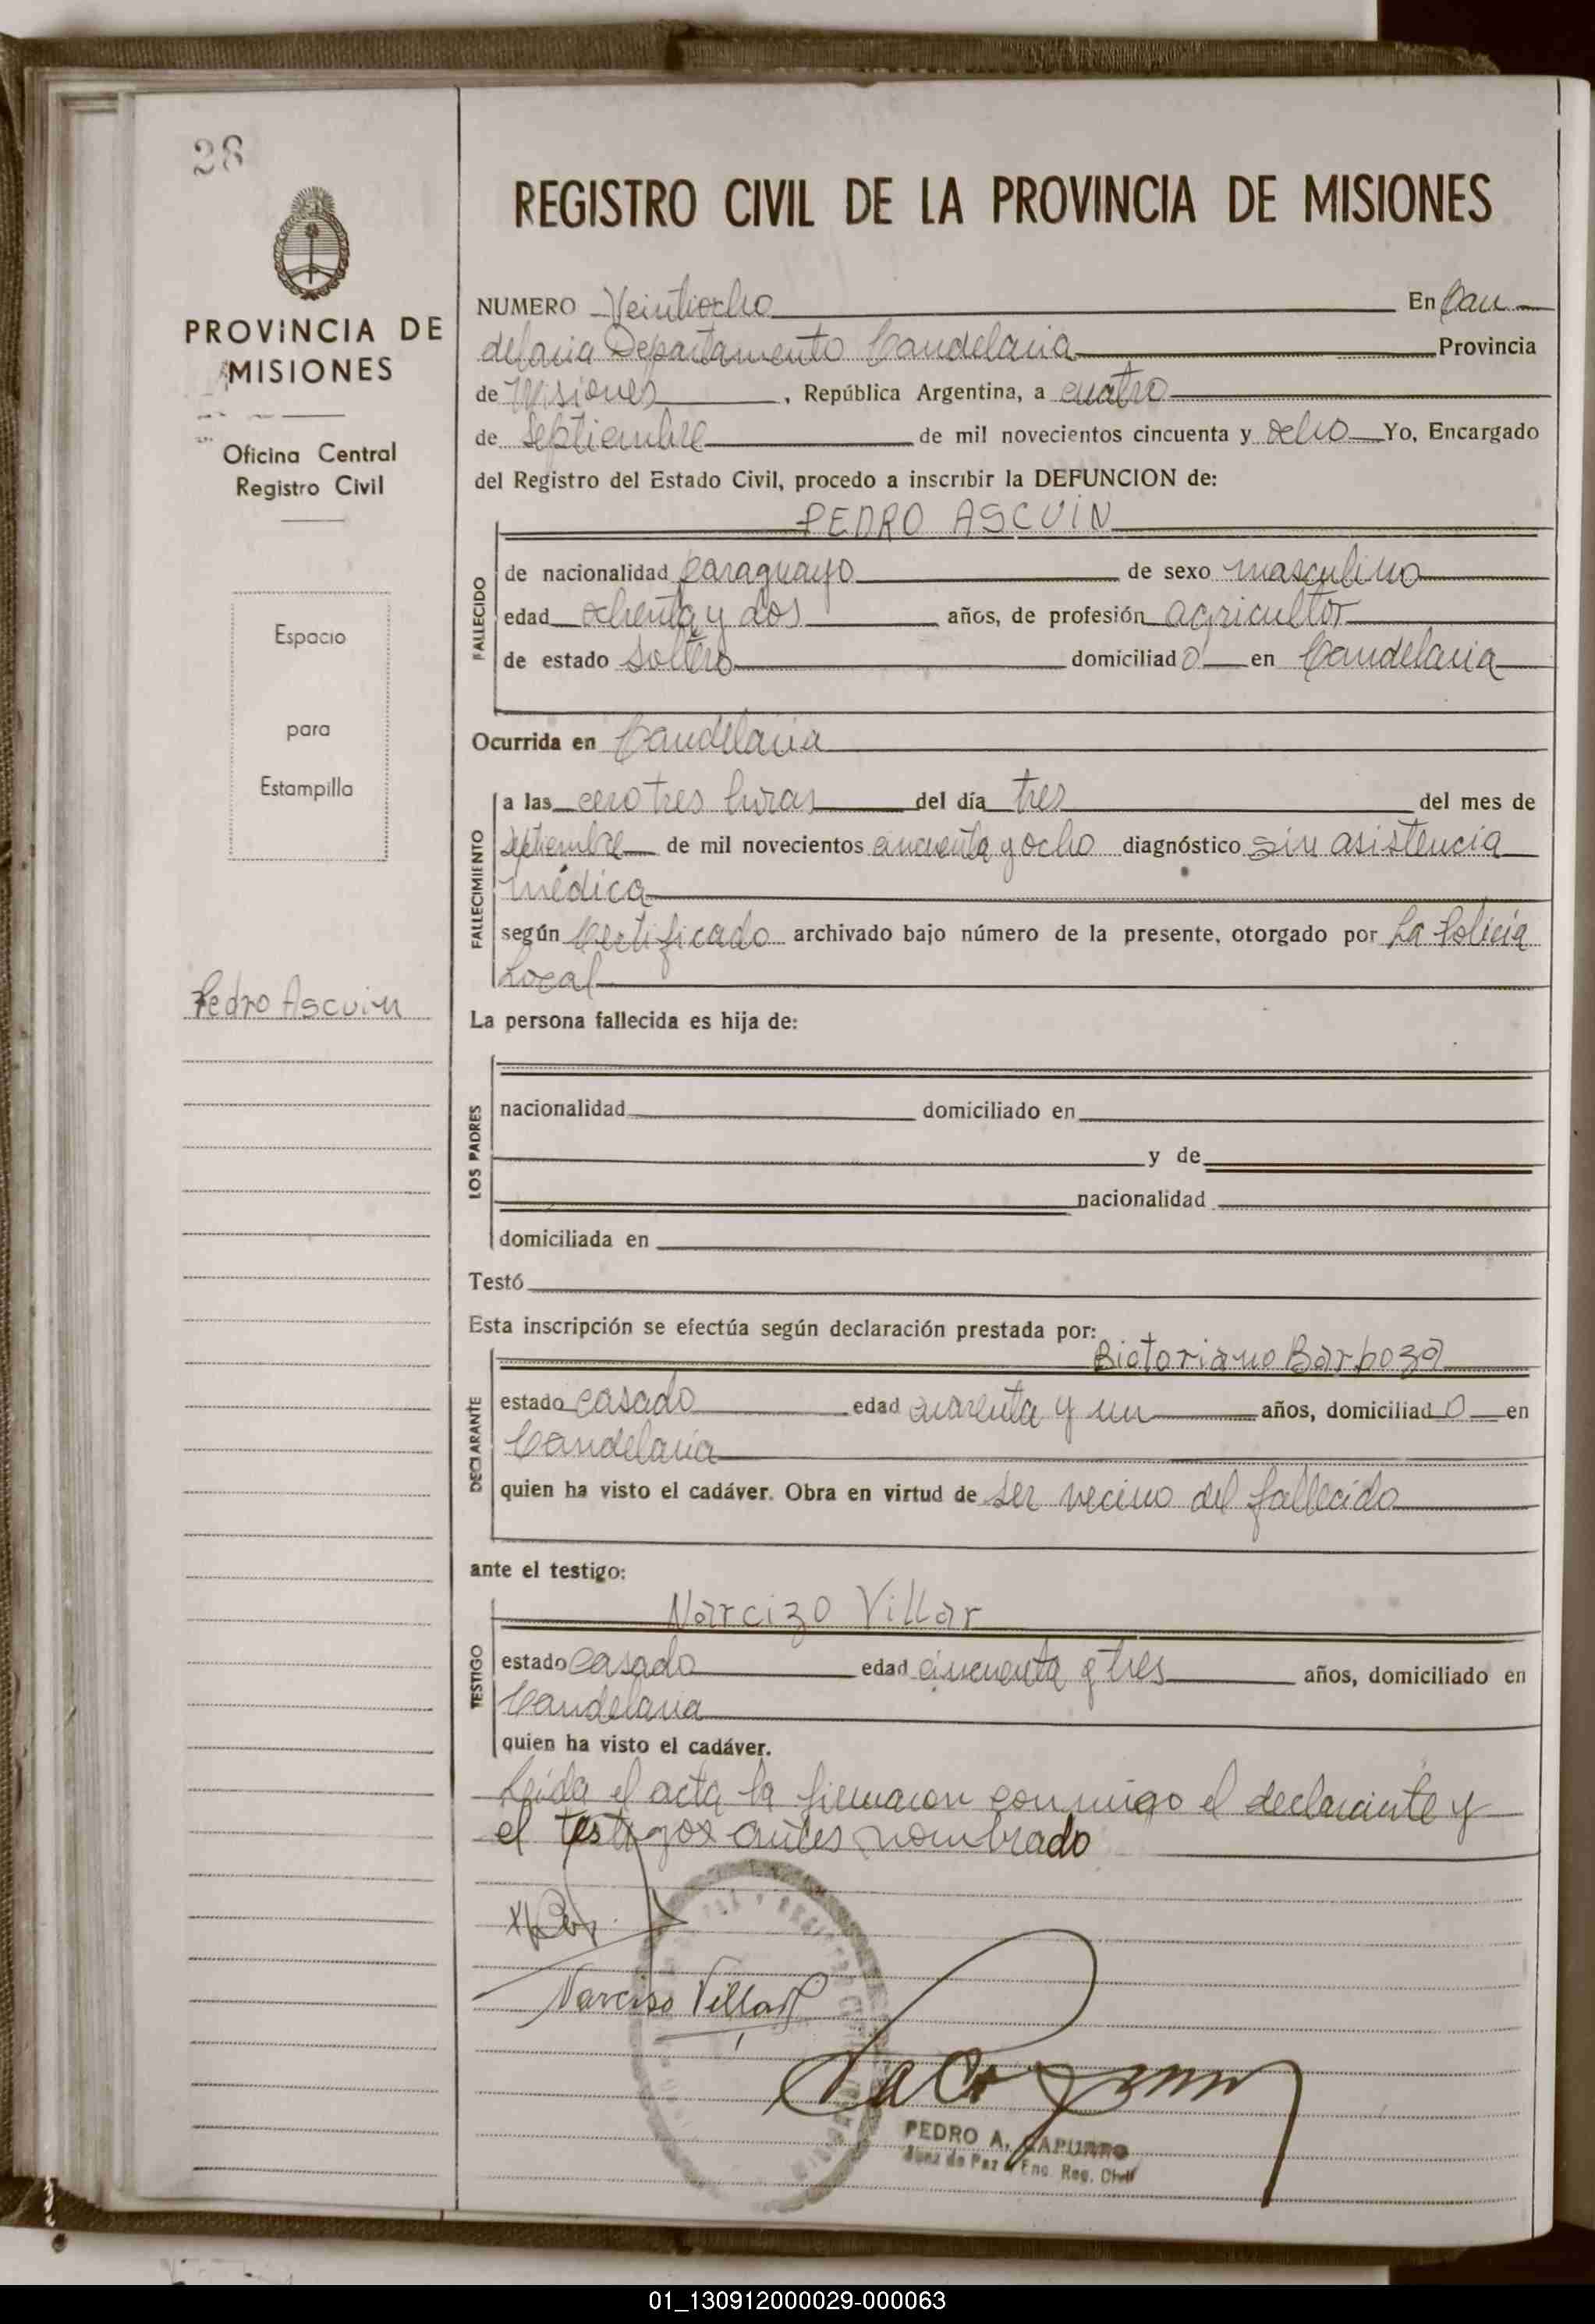 28
PROVINCIA DE
MISIONES
Oficina Central
Registro Civil
Espacio
para
Estampilla
Pedro Ascuin
REGISTRO CIVIL DE LA PROVINCIA DE MISIONES
NUMERO Veintiocho En Can
delaria Departamento Candelaria Provincia
de Misiones, República Argentina, a cuatro
de septiembre de mil novecientos cincuenta y ocho Yo, Encargado
del Registro del Estado Civil, procedo a inscribir la DEFUNCION de:
PEDRO ASCUIN
FALLECIDO
de nacionalidad paraguayo de sexo masculino
edad ochenta y dos años, de profesión agricultor
de estado soltero domiciliado en Candelaria
Ocurrida en Candelaria
FALLECIMIENTO
a las cero tres horas del día tres del mes de
septiembre de mil novecientos cincuenta y ocho diagnóstico sin asistencia
médica
según Certificado archivado bajo número de la presente, otorgado por La Policía
Local
La persona fallecida es hija de:
LOS PADRES
nacionalidad domiciliado en
y de
nacionalidad
domiciliada en
Testó
Esta inscripción se efectúa según declaración prestada por:
Bictoriano Barboza
DECLARANTE
estado casado edad cuarenta y un años, domiciliado en
Candelaria
quien ha visto el cadáver. Obra en virtud de ser vecino del fallecido
ante el testigo:
Narcizo Villar
TESTIGO
estado casado edad cincuenta y tres años, domiciliado en
Candelaria
quien ha visto el cadáver.
Leída el acta la firmaron conmigo el declarante y
el testigos antes nombrado
Narciso Villar
PEDRO A. CAPURRO
Juez de Paz y Enc. Reg. Civil
01_130912000029-000063